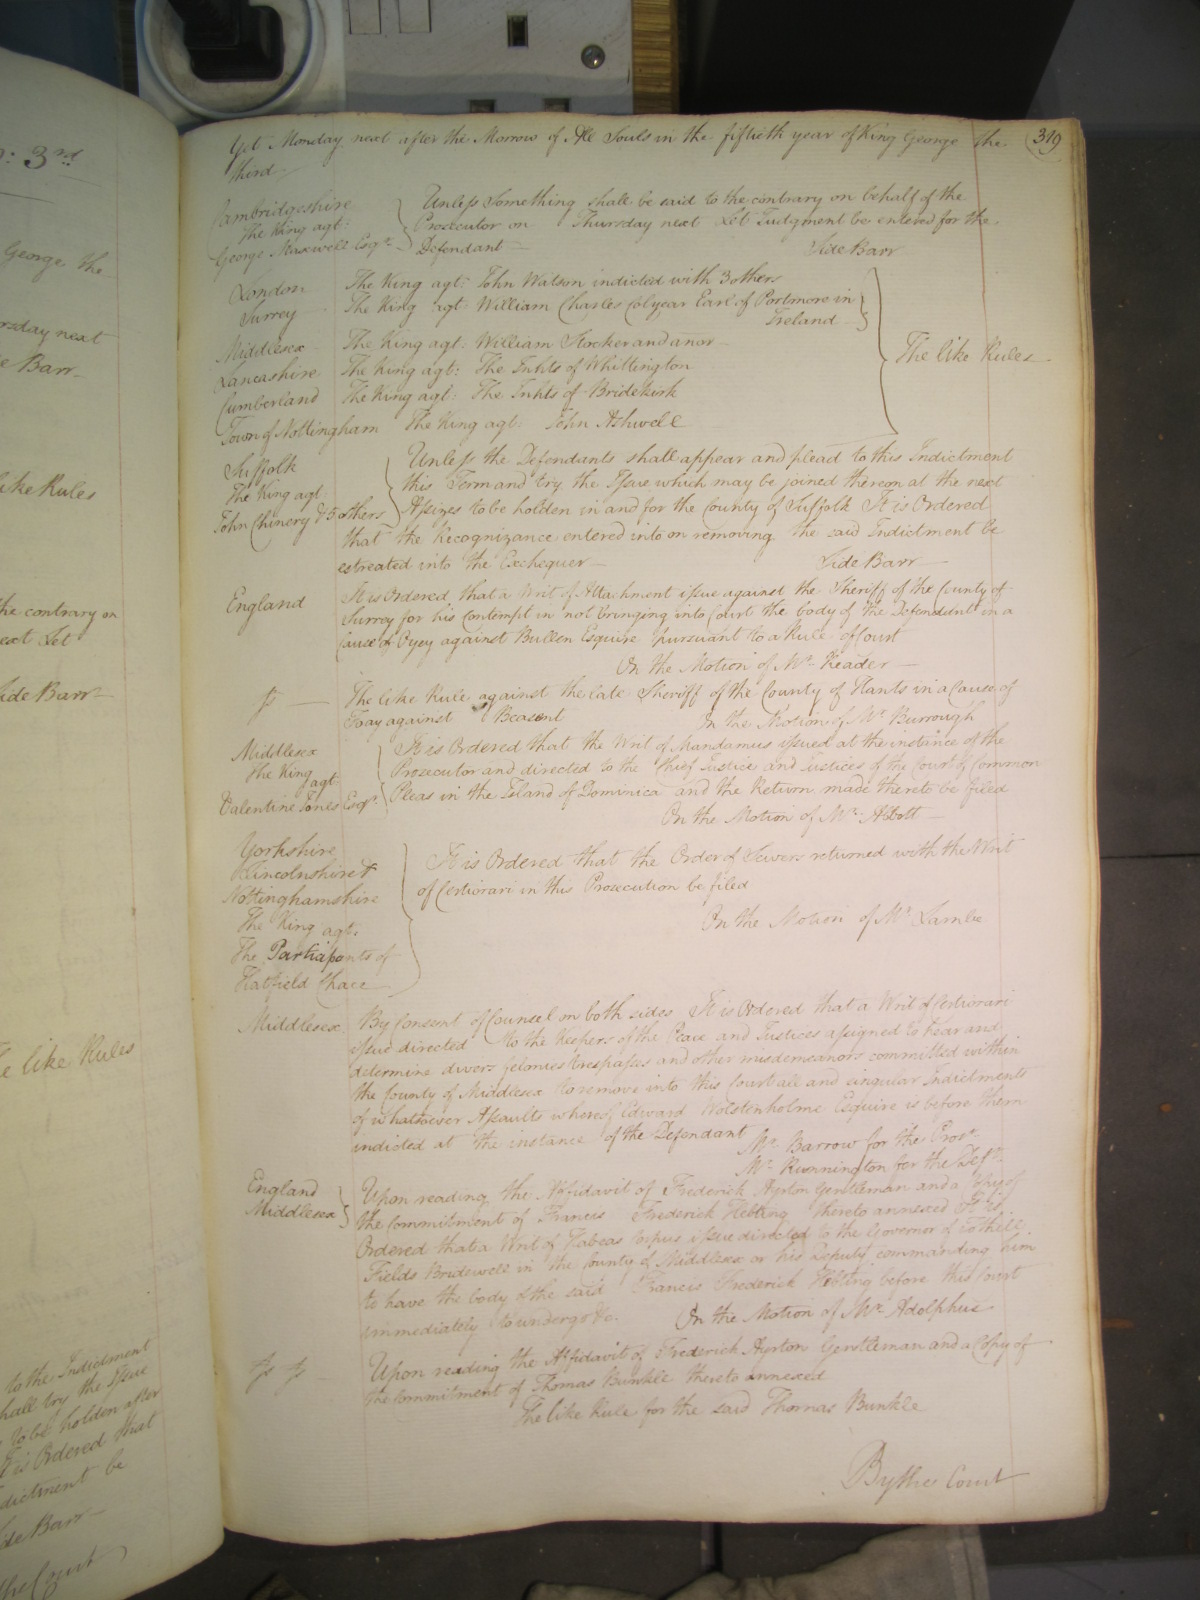 o: 3rd
George the
rsday next
e Barr
ike Rules
the contrary on
next Let
Side Barr
e like Rules
to the Indictment
hall try the Issue
to be holden after
It is Ordered that
dictment be
ide Barr
the Court
Yet Monday next after the Morrow of All Souls in the fiftieth year of King George the 319
third
Cambridgeshire
The King agt:
George Maxwell Esqr.
Unless Something shall be said to the contrary on behalf of the
Prosecutor on Thursday next Let Judgment be entered for the
Defendant Side Barr
London The King agt: John Watson indicted with 3 others
Surrey The King agt: William Charles Colyear Earl of Portmore in
Ireland
Middlesex The King agt: William Stocker and anor
Lancashire The King agt: The Inhts of Whittington
Cumberland The King agt: The Inhts of Bridekirk
Town of Nottingham The King agt: John Ashwell
The like Rules
Suffolk
The King agt
John Chinery & 5 others
Unless the Defendants shall appear and plead to this Indictment
this Term and try the Issue which may be joined thereon at the next
Assizes to be holden in and for the County of Suffolk It is Ordered
that the Recognizance entered into on removing the said Indictment be
estreated into the Exchequer Side Barr
England It is Ordered that a Writ of Attachment issue against the Sheriff of the County of
Surrey for his Contempt in not bringing into Court the body of the Defendant in a
Cause of against Bullen Esquire pursuant to a Rule of Court
On the Motion of Mr. Reader
The like Rule against the late Sheriff of the County of Hants in a Cause of
Toay against Beasent On the Motion of Mr Burrough
Middlesex
The King
agt:
Valentine Jones Esqr.
It is Ordered that the Writ of Mandamus issued at the instance of the
Prosecutor and directed to the Chief Justice and Justices of the Court of Common
Pleas in the Island of Dominica and the Return made thereto be filed
On the Motion of Mr. Abbott
Yorkshire
Lincolnshire &
Nottinghamshire
The King agt:
The Participants of
Hatfield Chace
It is Ordered that the Order of Sewers returned with the Writ
of Certiorari in this Prosecution be filed
On the Motion of Mr Lambe
Middlesex By Consent of Counsel on both sides It is Ordered that a Writ of Certiorari
issue directed to the Keepers of the Peace and Justices assigned to hear and
determine divers felonies trespasses and other misdemeanors committed within
the County of Middlesex to remove into this Court all and singular Indictments
of whatsoever Assaults whereof Edward Wolstenholme Esquire is before them
indicted at the instance of the Defendant Mr. Barrow for the Prosr.
Mr. Runnington for the Deft.
England
Middlesex
Upon reading the Affidavit of Frederick Ayrton Gentleman and a Copy of
the Commitment of Francis Frederick Hebting thereto annexed It is
Ordered that a Writ of Habeas Corpus issue directed to the Governor of Tothill
Fields Bridewell in the County of Middlesex or his Deputy commanding him
to have the body of the said Francis Frederick Hebting before this Court
immediately to undergo &c. On the Motion of Mr. Adolphus
Upon reading the Affidavit of Frederick Ayrton Gentleman and a Copy of
the Commitment of Thomas Bunkle thereto annexed
The like Rule for the said Thomas Bunkle
By the Court